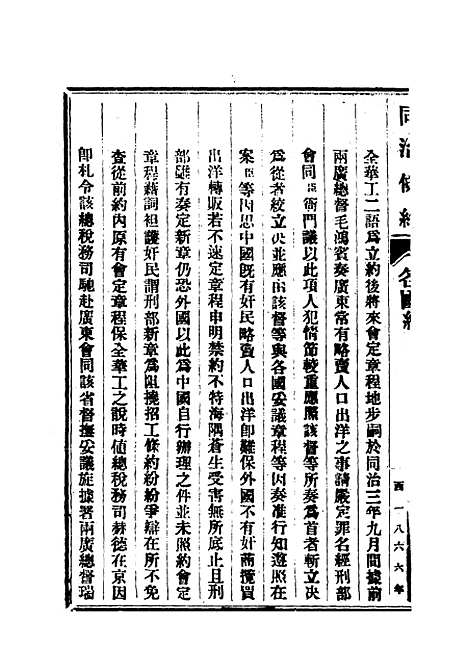 同治條約
各國約
西一八六六年
全華工二語爲立約後將來會定章程地步嗣於同治三年九月間據前
兩廣總督毛鴻賓奏廣東常有略賣人口出洋之事請嚴定罪名經刑部
會同臣衙門議以此項人犯情節較重應照該督等所奏爲首者斬立决
爲從者絞立决並應由該督等與各國妥議章程等因奏准行知遵照在
案臣等因思中國旣有奸民略賣人口出洋卽難保外國不有奸商攬買
出洋轉販若不速定章程申明禁約不特海隅蒼生受害無所底止且刑
部雖有奏定新章仍恐外國以此爲中國自行辦理之件並未照約會定
章程藉詞袒護奸民謂刑部新章爲阻撓招工條約紛紛爭辯在所不免
查從前約內原有會定章程保全華工之說時値總稅務司赫德在京因
卽札令該總稅務司馳赴廣東會同該省督撫妥議旋據署兩廣總督瑞